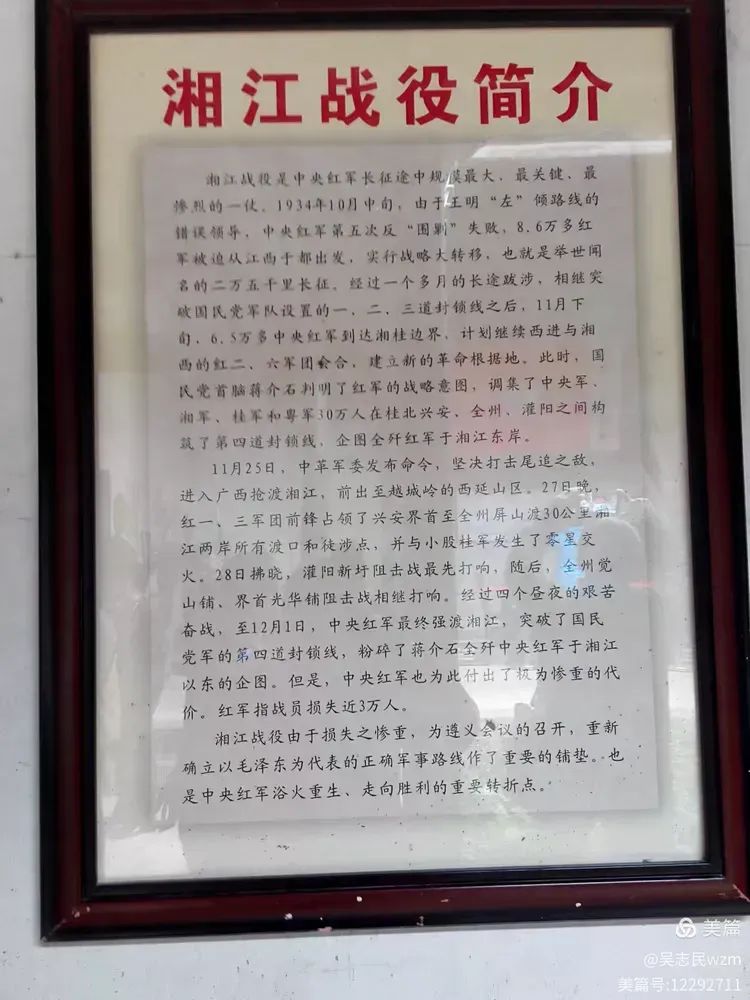 湘江战役简介
湘江战役是中央红军长征途中规模最大、最关键、最
惨烈的一仗。1934年10月中旬，由于王明“左”倾路线的
错误领导，中央红军第五次反“围剿”失败，8.6万多红
军被迫从江西于都出发，实行战略大转移，也就是举世闻
名的二万五千里长征。经过一个多月的长途跋涉，相继突
破国民党军队设置的一、二、三道封锁线之后，11月下
旬，6.5万多中央红军到达湘桂边界，计划继续西进与湘
西的红二、六军团会合，建立新的革命根据地。此时，国
民党首脑蒋介石判明了红军的战略意图，调集了中央军、
湘军、桂军和粤军30万人在桂北兴安、全州、灌阳之间构
筑了第四道封锁线，企图全歼红军于湘江东岸。
11月25日，中革军委发布命令，坚决打击尾追之敌，
进入广西抢渡湘江，前出至越城岭的西延山区。27日晚，
红一、三军团前锋占领了兴安界首至全州屏山渡30公里湘
江两岸所有渡口和徒涉点，并与小股桂军发生了零星交
火。28日拂晓，灌阳新圩阻击战最先打响，随后，全州觉
山铺、界首光华铺阻击战相继打响。经过四个昼夜的艰苦
奋战，至12月1日，中央红军最终强渡湘江，突破了国民
党军的第四道封锁线，粉碎了蒋介石全歼中央红军于湘江
以东的企图。但是，中央红军也为此付出了极为惨重的代
价。红军指战员损失近3万人。
湘江战役由于损失之惨重，为遵义会议的召开，重新
确立以毛泽东为代表的正确军事路线作了重要的铺垫。也
是中央红军浴火重生、走向胜利的重要转折点。
美篇
@吴志民wzm
美篇号:12292711